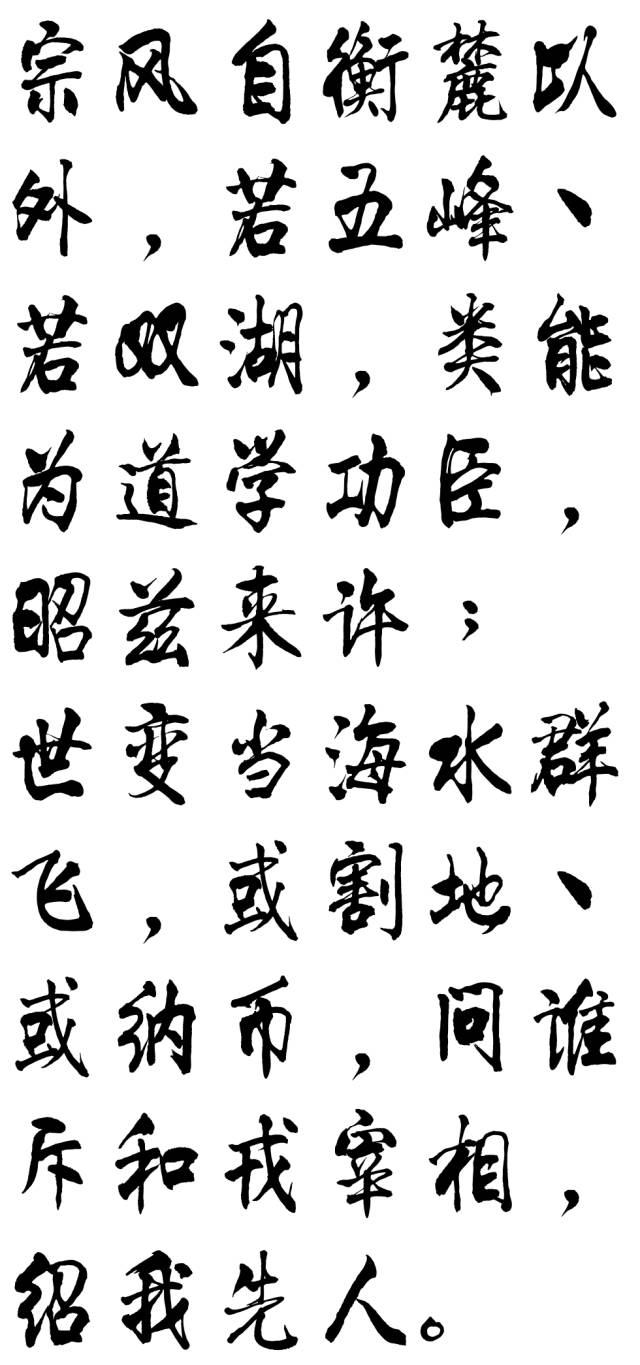 宗风自衡麓以
外，若五峰、
若双湖，类能
为道学功臣，
昭兹来许；
世变当海水群
飞，或割地、
或纳币，问谁
斥和戎宰相，
绍我先人。